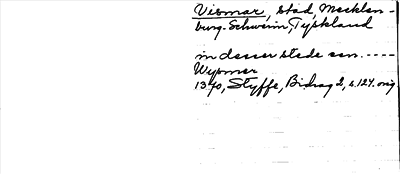 Vismar, stad, Mecklen-
burg-Schwerin, Tyskland
in desser stede een . ----
Wysmer
1370, Styffe, Bidrag 2, s. 124. orig